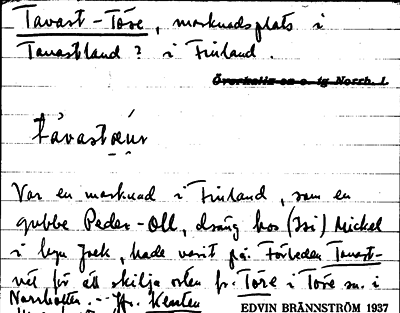 Tavast-Töre, marknadsplats i
Tavastland? i Finland.
Överkalix sn o. tg Norrb. l.
Var en marknad i Finland, som en
gubbe Peder-Oll, dräng hos (Isi) Mickel
i byn Joek, hade varit på. Förleden Tavast-
väl för att skilja orten fr. Töre i Töre sn. i
Norrbotten. - Jfr. Kenten
EDVIN BRÄNNSTRÖM 1937